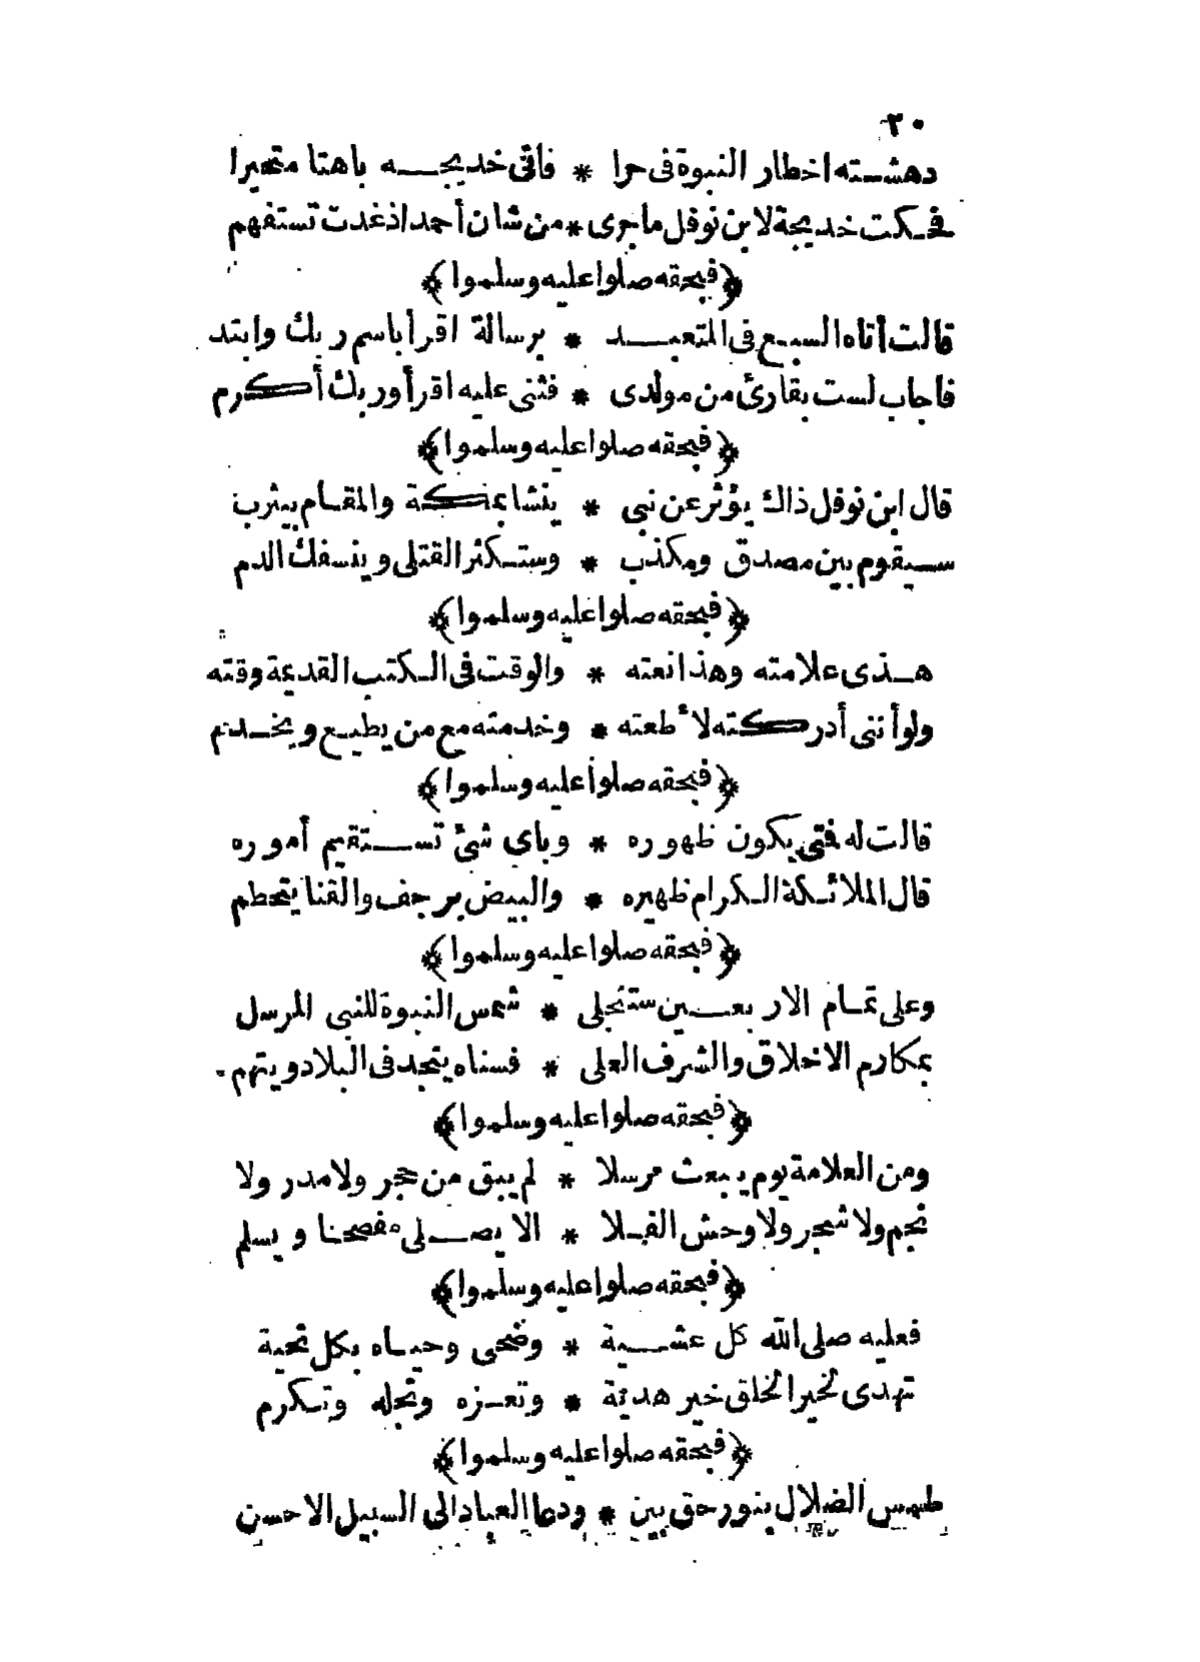 ٢٠
دهشته اخطار النبوة فى حرا * فاتى خديجه باهتا متحيرا
فحكت خديجة لابن نوفل ما جرى * من شان أحمد اذ غدت تستفهم
﴿فبحقه صلوا عليه وسلموا﴾
قالت أتاه السبع فى المتعبد * برسالة اقرأ باسم ربك وابتد
فاجاب لست بقارئ من مولدى * فثنى عليه اقرأ وربك أكرم
﴿فبحقه صلوا عليه وسلموا﴾
قال ابن نوفل ذاك يؤثر عن نبى * ينشا بمكة والمقام بيثرب
سيقوم بين مصدق ومكذب * وستكثر القتلى وينسفك الدم
﴿فبحقه صلوا عليه وسلموا﴾
هذى علامته وهذا نعته * والوقت فى الكتب القديمة وقته
ولو أننى أدركته لأطعته * وخدمته مع من يطيع ويخدم
﴿فبحقه صلوا عليه وسلموا﴾
قالت له فمتى يكون ظهوره * وباى شئ تستقيم أموره
قال الملائكة الكرام ظهيره * والبيض يرجف والقنا يتحطم
﴿فبحقه صلوا عليه وسلموا﴾
وعلى تمام الاربعين ستنجلى * شمس النبوة للنبى المرسل
بمكارم الاخلاق والشرف العلى * فسناه ينجد فى البلاد ويتهم
﴿فبحقه صلوا عليه وسلموا﴾
ومن العلامة يوم يبعث مرسلا * لم يبق من حجر ولا مدر ولا
نجم ولا شجر ولا وحش الفلا * الا يصلى مفصحا ويسلم
﴿فبحقه صلوا عليه وسلموا﴾
فعليه صلى الله كل عشية * وضحى وحياه بكل تحية
تهدى لخير الخلق خير هدية * وتعزه وتجله وتكرم
﴿فبحقه صلوا عليه وسلموا﴾
طمس الضلال بنور حق بين * ودعا العباد الى السبيل الاحسن